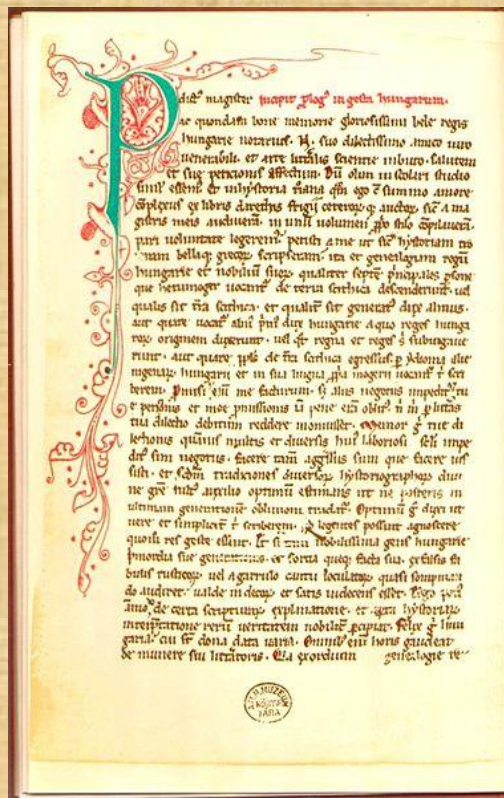 P dict᷒ magister Incipit ꝓlog᷒ in gesta hungarum.
ac quondam bone memorie gloriosissimi bele regis
hungarie notarius. N. suo dilectissimo amico uiro
uenerabili. et arte litt̃alis scientie inbuto. salutem
et sue peticionis affectum. Dũ olim in scolari studio
simul essem᷒ et in hystoria t̃ana q̃m ego c̃ summo amore
cõplexus ex libris darethis frigii ceteroꝝ q; auctoꝝ sic̃ a ma
gistris meis audiuerã. in unũ uolumen ꝓp̃o stilo cõpilauerã
pari uoluntate legerem᷒. petisti a me ut sic̃ hystoriam tro
ianam bellaq; grecoꝝ scripseram. ita et genealogiam regũ
hungarie et nobilium suoꝝ. qualiter septẽ p̃ncipales ꝑsone
que hetumoger uocant᷑ de terra scithica descenderunt. uel
qualis sit t̃ra scithica. et qualit̃ sit generat᷒ dux almus.
aut quare uocat᷑ alm᷒ prim᷒ dux hungarie a quo reges hunga
roꝝ originem duxerunt. uel q̃t regna et reges s̃ subiugaue
runt. aut quare ppl̃s de t̃ra scithica egressus ꝑ ydioma alie
nigenaꝝ hungarii et in sua lingua ꝓp̃a mogerii uocant᷑ t̃ scri
berem. Promisi eñi me facturum. sꝫ aliis negotiis impedit᷒ tu
e peticionis et mee ꝓmissionis iã pene erã oblit᷒. ni m̃ ꝑ litt̃as
tua dilectio debitum reddere monuisset. Memor g̃ tue di
lectionis quãuis multis et diuersis hui᷒ laboriosi sc̃li impe
dit᷒ sim negotiis. facere tam̃ aggressus sum que facere ius
sisti. et sc̃dm̃ traditiones diuersoꝝ hystoriographoꝝ diui
ne gr̃e fult᷒ auxilio optimũ estimans ut ne posteris in
ultimam generationẽ obliuioni tradat᷑. Optimum g̃ duxi ut
uere et simplicit̃ t̃ scriberem. q̃ legentes possint agnoscere
quoĩ res geste essent. Et si tam nobilissima gens hungarie
primordia sue generationis et fortia queq; facta sua. ex falsis fa
bulis rusticoꝝ. uel a garrulo cantu ioculatoꝝ quasi sompnian
do audiret. ualde indecoꝝ et satis indecens esset. Ergo poti᷒
amo᷒ de certa scripturaꝝ explanatione. et aꝑta hystoriaꝝ
int̃p̃tatione rerũ ueritatem nobilit̃ ꝑcipiat. Felix g̃ hun
garia. cui st̃ dona data uaria. Omnib᷒ eñi horis gaudeat
de munere sui litt̃atoris. Quia exordium genealogie re-
MUZEUM
KÖNYV
TÁRA